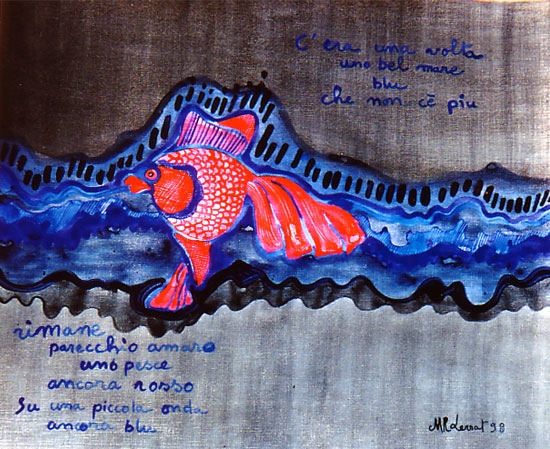 C'era una volta
uno bel mare
blu
che non c'è piu
rimane
parecchio amaro
uno pesce
ancora rosso
su una piccola onda
ancora blu
98